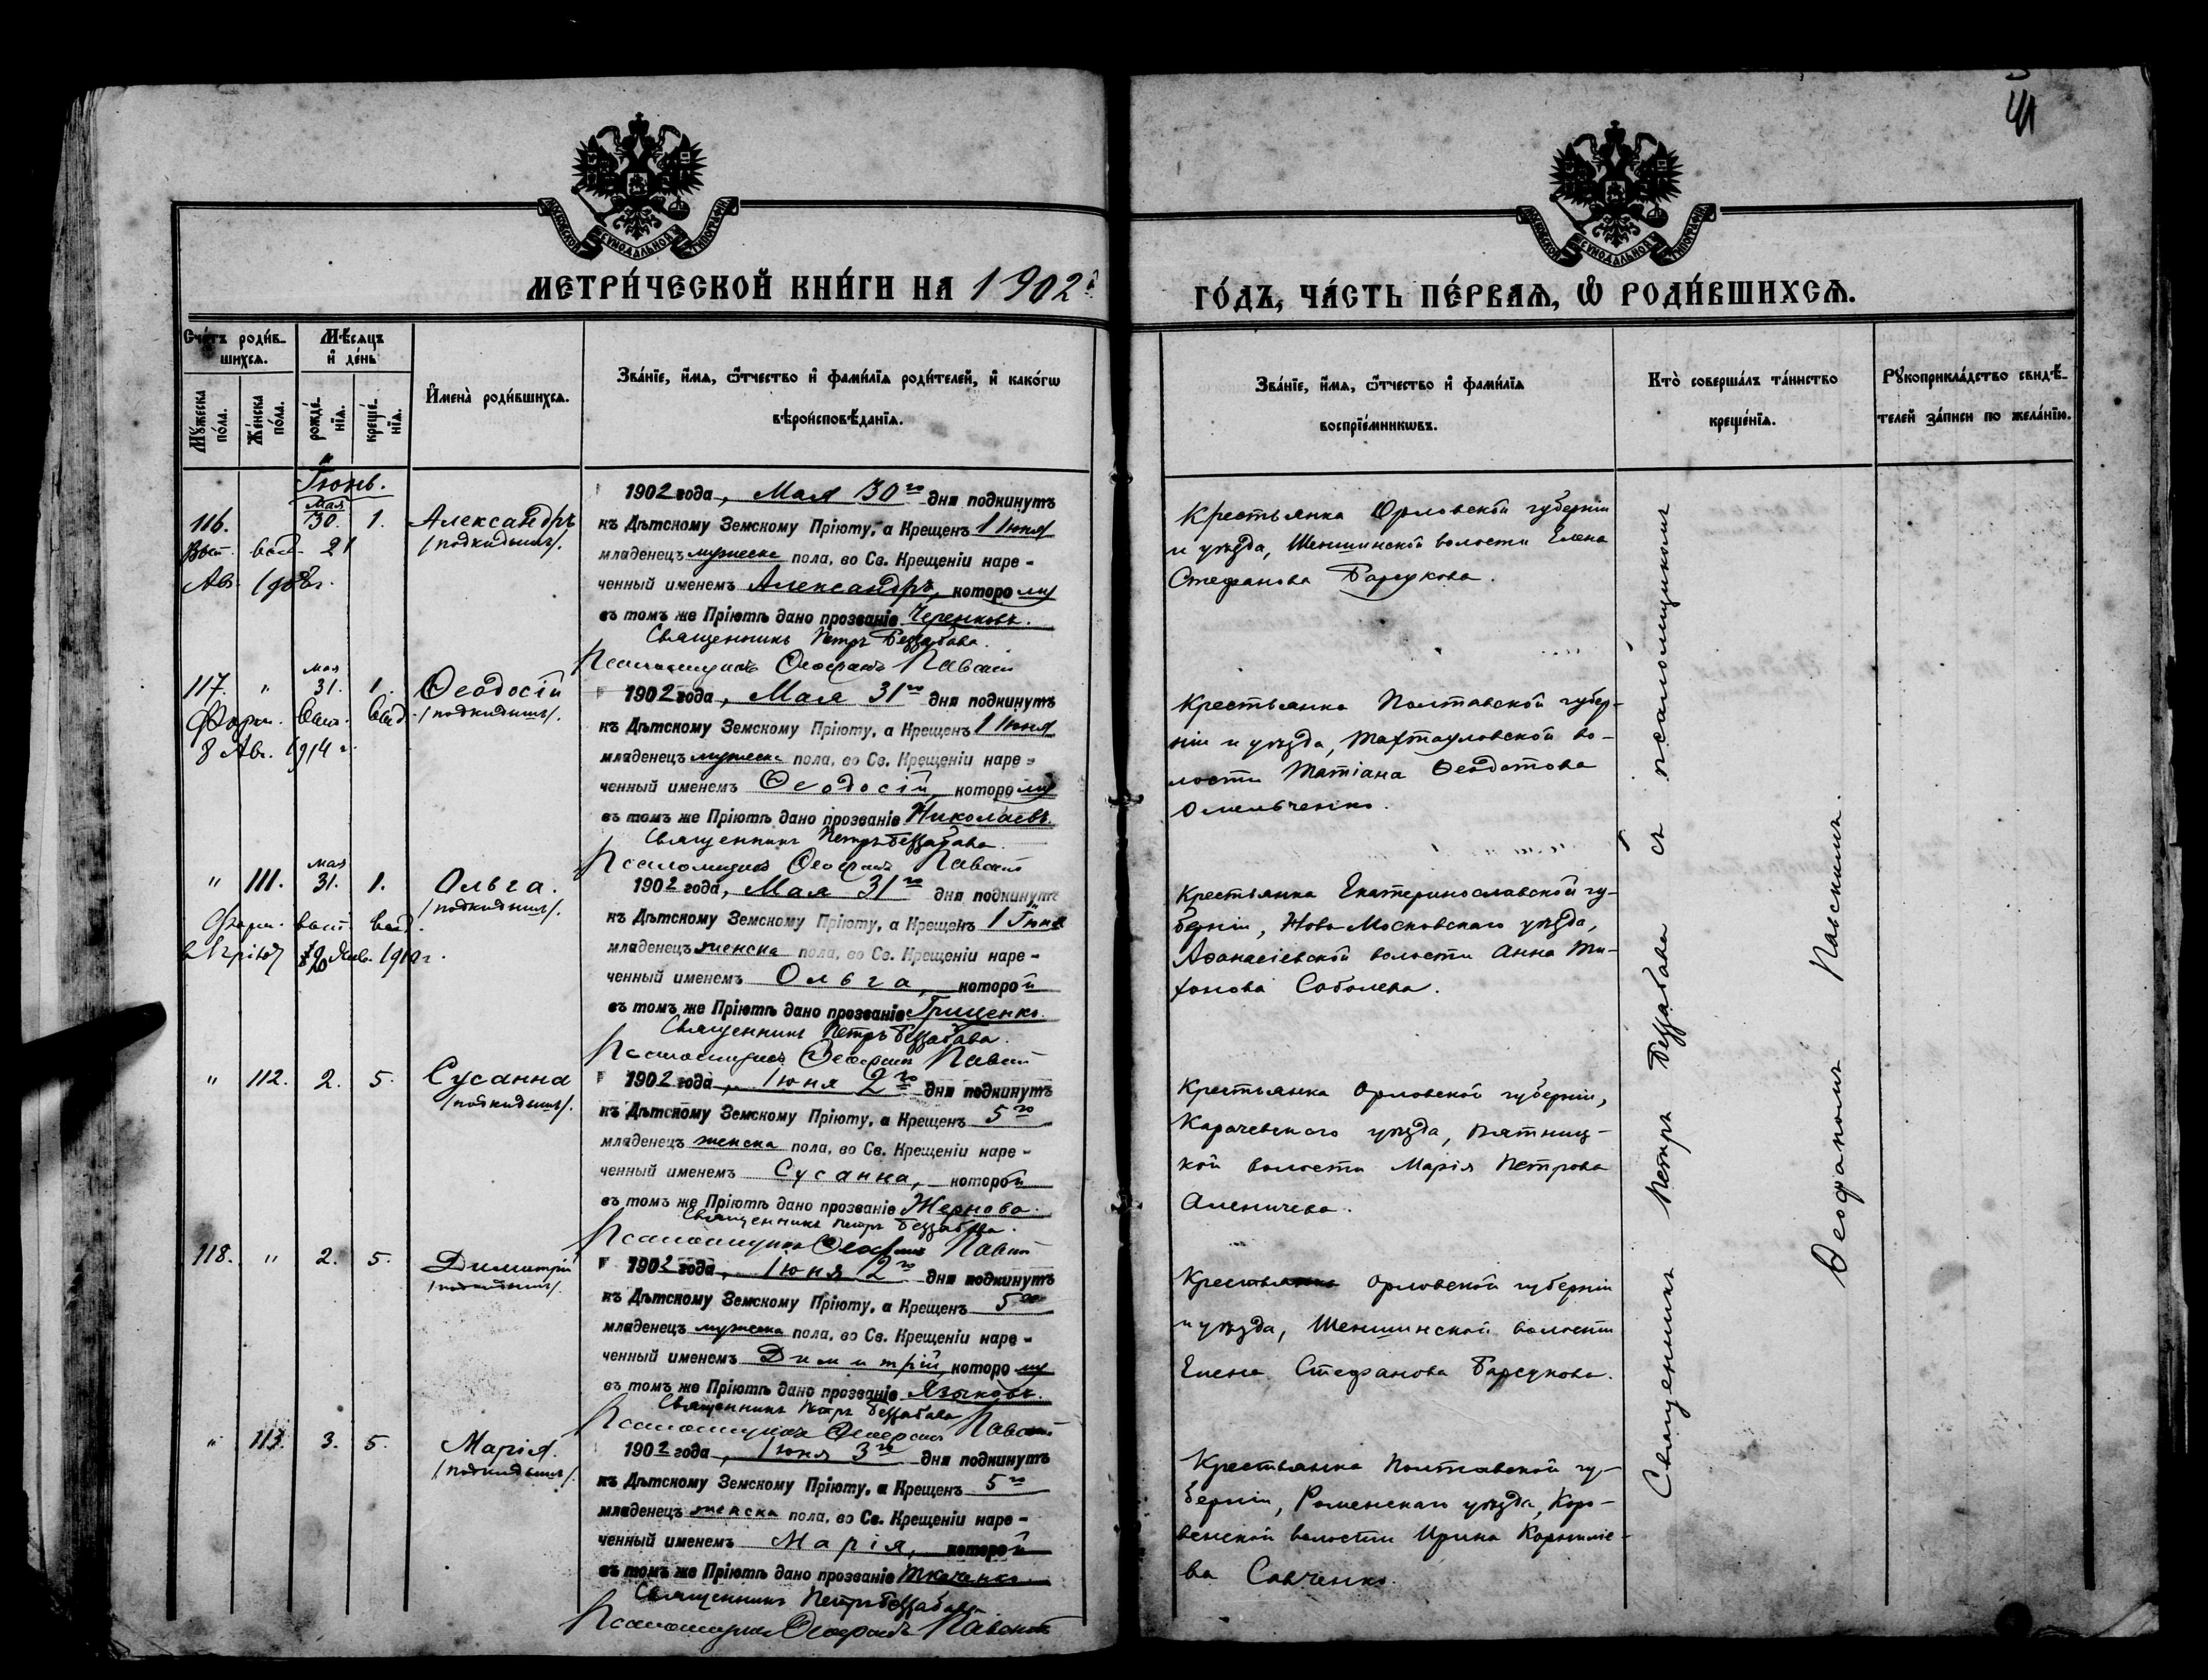 41
МОСКОВСКОЙ СѴНОДАЛЬНОЙ ТИПОГРАФІИ
МОСКОВСКОЙ СѴНОДАЛЬНОЙ ТИПОГРАФІИ
МЕТРИ́ЧЕСКОЙ КНИ́ГИ НА 1902й
ГО́ДЪ, ЧА́СТЬ ПЕ́РВАѦ, Ѡ҆ РОДИ́ВШИХСѦ.
Сче́тъ роди́в-
шихсѧ.
Мꙋжеска по́ла.
Же́нска по́ла.
Мѣ́сѧцъ
и҆ де́нь
рожде́-
нїѧ.
креще́-
нїѧ.
И҆мена̀ роди́вшихсѧ.
Зва́нїе, и҆́мѧ, ѻ҆́тчество и҆ фами́лїѧ роди́телей, и҆ како́гѡ
вѣроисповѣ́данїѧ.
Зва́нїе, и҆́мѧ, ѻ҆́тчество и҆ фами́лїѧ
воспрїе́мникѡвъ.
Кто̀ соверша́лъ та́инство
креще́нїѧ.
Рꙋкоприкла́дство свидѣ́-
телей за́писи по жела́нїю.
Іюнь.
116.
Мая
30.
1.
Александръ
/подкидышъ/.
выд. 21
Ав. 1908г.
1902 года, Мая 30го дня подкинутъ
къ Дѣтскому Земскому Пріюту, а Крещенъ 1 Іюня
младенецъ мужеска пола, во Св. Крещеніи наре-
ченный именемъ Александръ, которому
въ томъ же Пріютѣ дано прозваніе Черенковъ.
Священникъ Петръ Беззабава.
Псаломщикъ Ѳеофанъ Павскій
Крестьянка Орловской губерніи
и уѣзда, Шеншинской волости Елена
Стефанова Барсукова.
117.
"
мая
31.
1.
Ѳеодосій
/подкидышъ/.
8 Ав. 1914 г.
1902 года, Мая 31го дня подкинутъ
къ Дѣтскому Земскому Пріюту, а Крещенъ 1 Іюня
младенецъ мужеска пола, во Св. Крещеніи наре-
ченный именемъ Ѳеодосій, которому
въ томъ же Пріютѣ дано прозваніе Николаевъ.
Священникъ Петръ Беззабава.
Псаломщикъ Ѳеофанъ Павскій
Крестьянка Полтавской губер-
ніи и уѣзда, Тахтауловской во-
лости Татіана Ѳеодотова
Омельченко.
"
111.
мая
31.
1.
Ольга.
/подкидышъ/.
Янв. 1910 г.
1902 года, Мая 31го дня подкинутъ
къ Дѣтскому Земскому Пріюту, а Крещенъ 1 Іюня
младенецъ женска пола, во Св. Крещеніи наре-
ченный именемъ Ольга, которой
въ томъ же Пріютѣ дано прозваніе Гриценко.
Священникъ Петръ Беззабава.
Псаломщикъ Ѳеофанъ Павскій
Крестьянка Екатеринославской гу-
берніи, Ново-Московскаго уѣзда,
Аѳанасіевской волости Анна Ти-
хонова Соболева.
"
112.
2.
5.
Сусанна
/подкидышъ/.
1902 года, Іюня 2го дня подкинутъ
къ Дѣтскому Земскому Пріюту, а Крещенъ 5го
младенецъ женска пола, во Св. Крещеніи наре-
ченный именемъ Сусанна, которой
въ томъ же Пріютѣ дано прозваніе Жернова.
Священникъ Петръ Беззабава.
Псаломщикъ Ѳеофанъ Павскій
Крестьянка Орловской губерніи,
Карачевскаго уѣзда, Пятниц-
кой волости Марія Петрова
Аленичева.
118.
"
2.
5.
Димитрій
/подкидышъ/.
1902 года, Іюня 2го дня подкинутъ
къ Дѣтскому Земскому Пріюту, а Крещенъ 5го
младенецъ мужеска пола, во Св. Крещеніи наре-
ченный именемъ Димитрій, которому
въ томъ же Пріютѣ дано прозваніе Языковъ.
Священникъ Петръ Беззабава
Псаломщикъ Ѳеофанъ Павскій
Крестьянка Орловской губерніи
и уѣзда, Шеншинской волости
Елена Стефанова Барсукова.
"
113.
3.
5.
Марія.
/подкидышъ/.
1902 года, Іюня 3го дня подкинутъ
къ Дѣтскому Земскому Пріюту, а Крещенъ 5го
младенецъ женска пола, во Св. Крещеніи наре-
ченный именемъ Марія, которой
въ томъ же Пріютѣ дано прозваніе Ткаченко.
Священникъ Петръ Беззабава
Псаломщикъ Ѳеофанъ Павскій
Крестьянка Полтавской гу-
берніи, Роменскаго уѣзда, Коро-
венской волости Ирина Корниліе-
ва Савченко.
Священникъ Петръ Беззабава съ псаломщикомъ
Ѳеофаномъ Павскимъ.